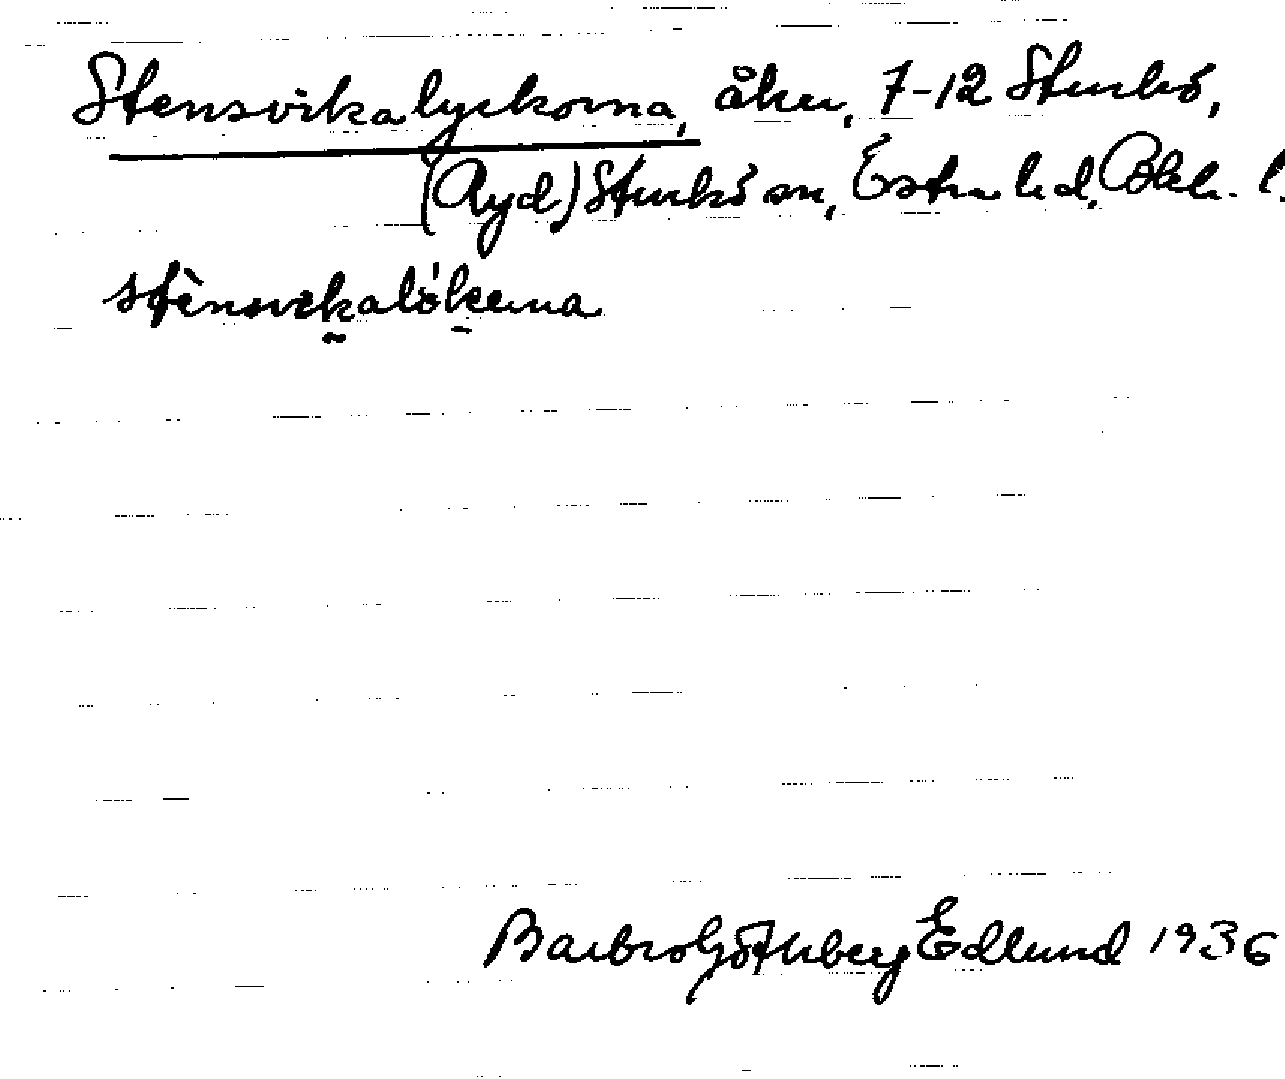 Stensvikalyckorna, åker, 7-12 Sturkö,
(Ryd) Sturkö sn, Östra hd, Blek. l.
stènsvikalókerna
Barbro Götherberg Edlund 1936